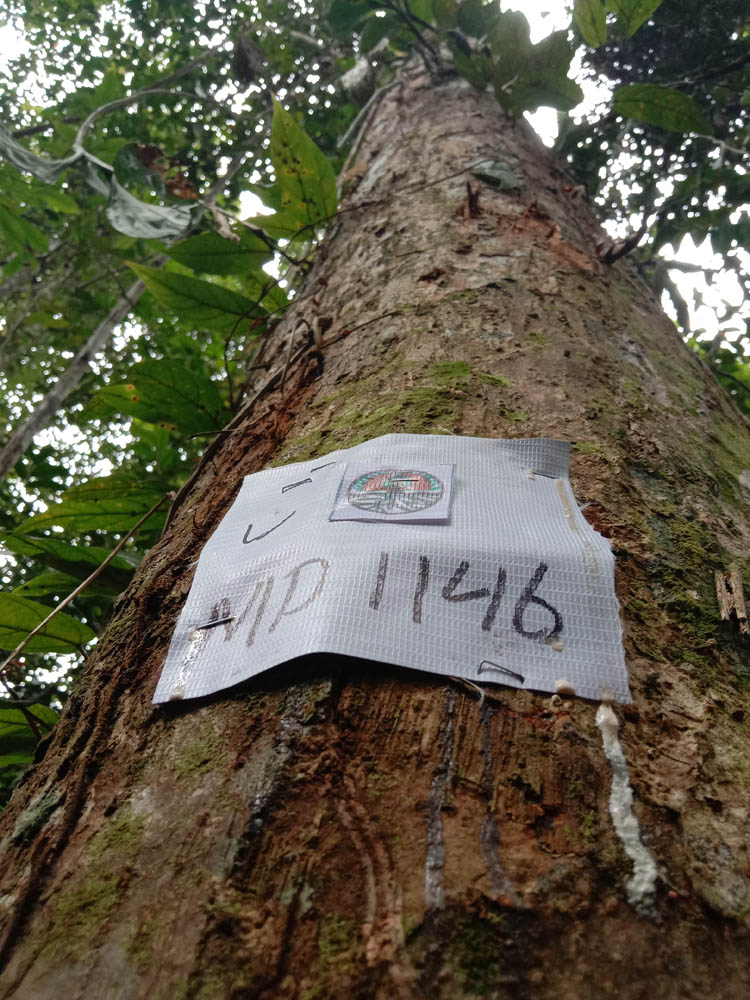 MD 1146